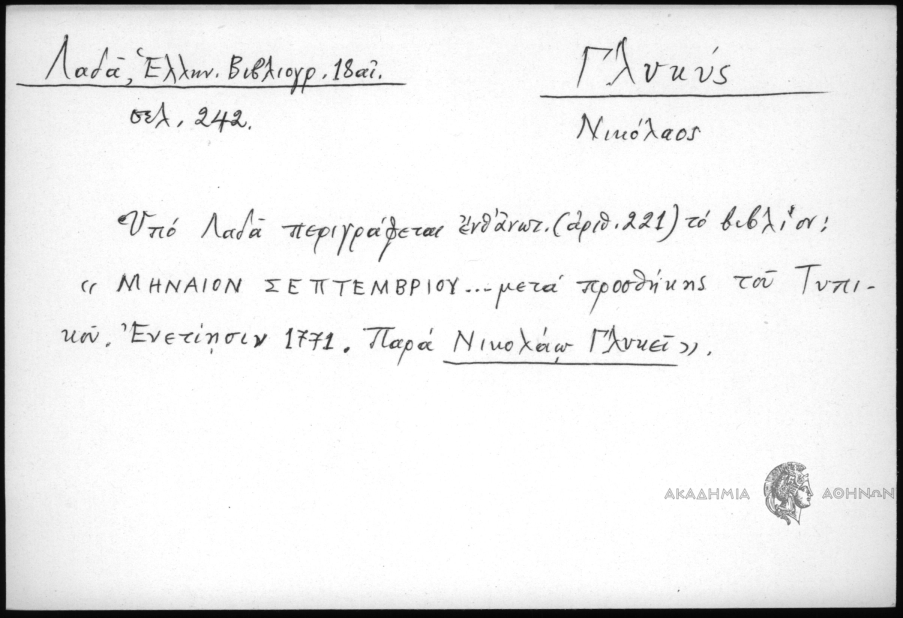 Λαδᾶ, Ἑλλην. Βιβλιογρ. 18 αἰ.
σελ. 242.
Γλυκύς
Νικόλαος
Ὑπό Λαδᾶ περιγράφεται ἐνθάνωτ. (ἀριθ. 221) τό βιβλίον:
« ΜΗΝΑΙΟΝ ΣΕΠΤΕΜΒΡΙΟΥ... μετά προσθήκης τοῦ Τυπι-
κοῦ. Ἐνετίησιν 1771. Παρά Νικολάῳ Γλυκεῖ».
ΑΚΑΔΗΜΙΑ ΑΘΗΝΩΝ